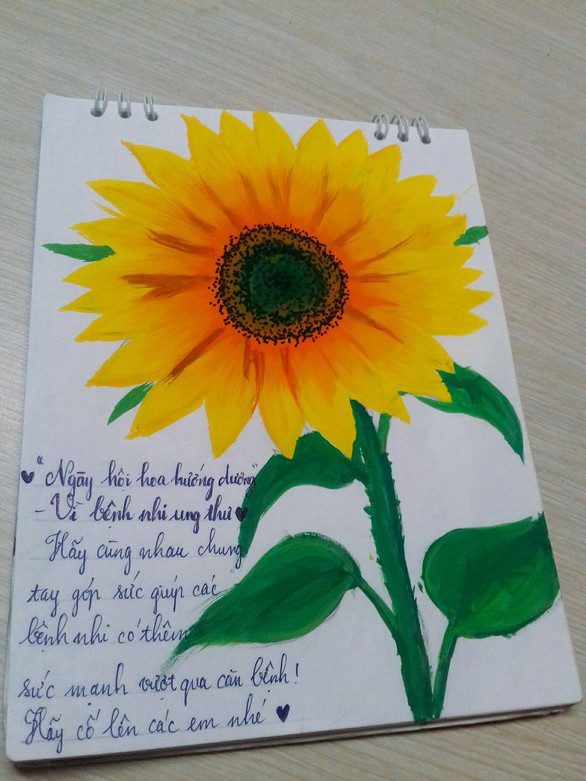 ♥ "Ngày hội hoa hướng dương"
- Vì bệnh nhi ung thư ♥
Hãy cùng nhau chung
tay góp sức giúp các
bệnh nhi có thêm
sức mạnh vượt qua căn bệnh!
Hãy cố lên các em nhé ♥